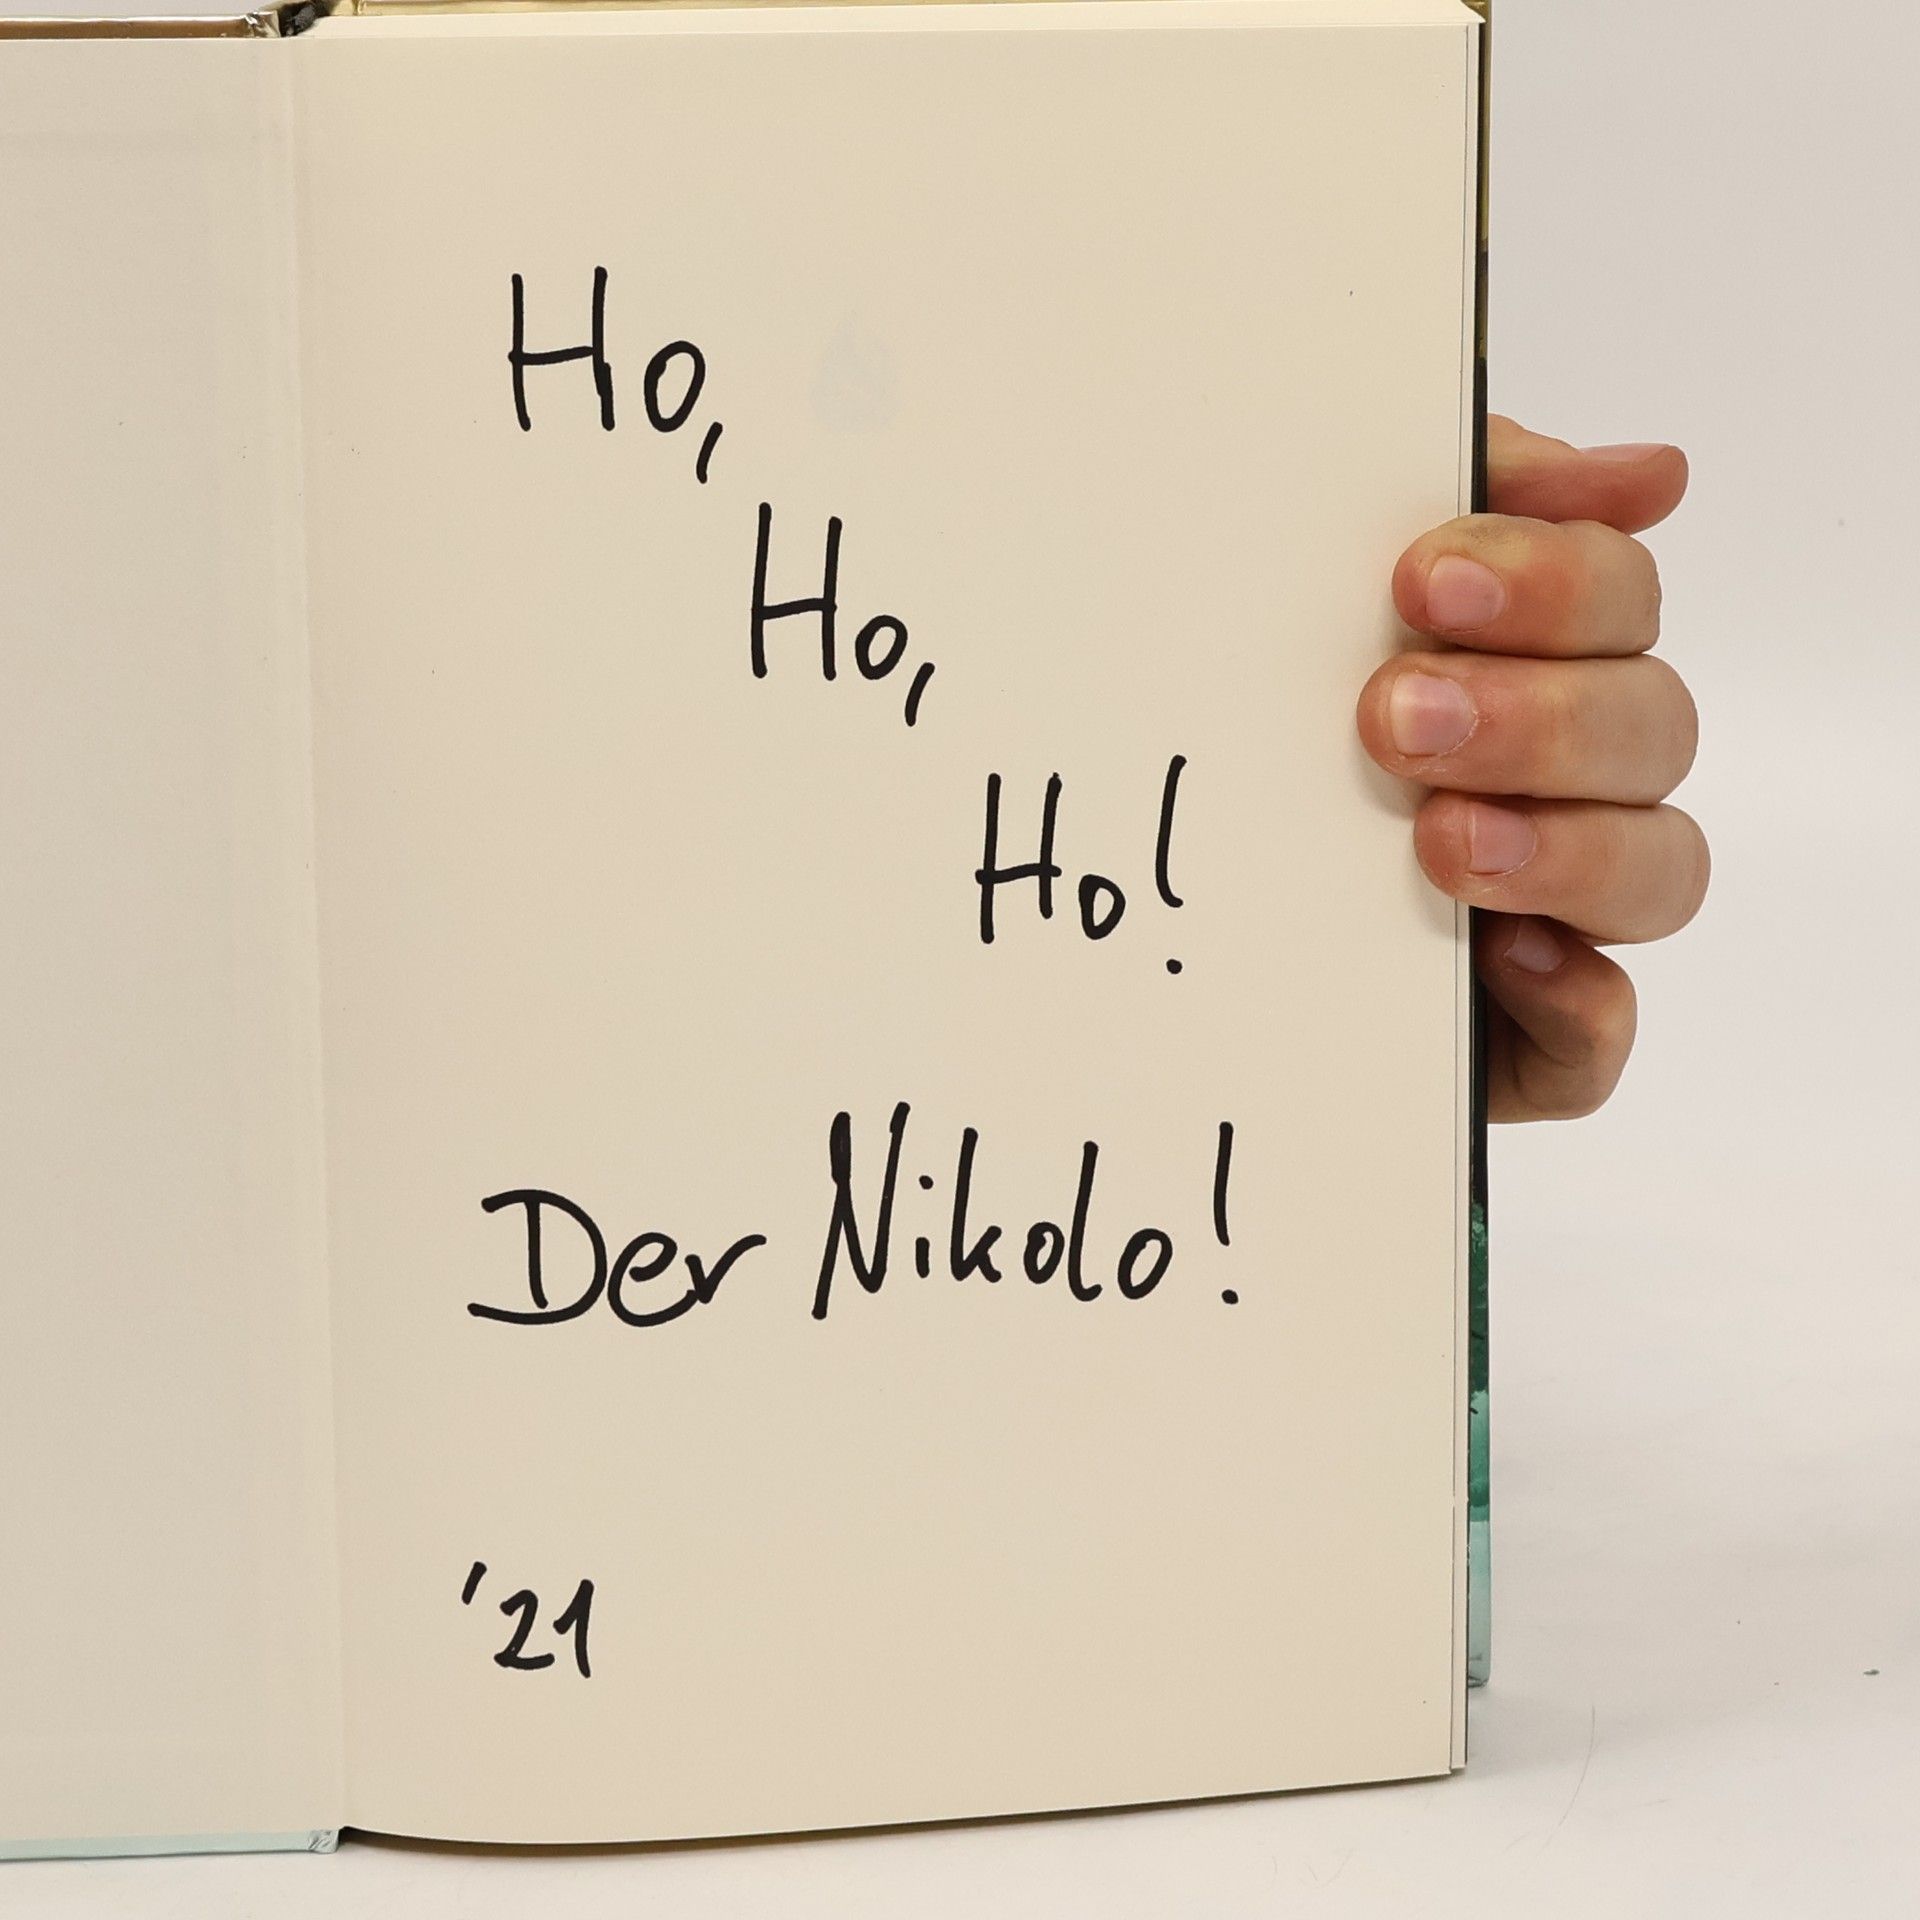 Ho,
Ho,
Ho!
Der Nikolo!
'21